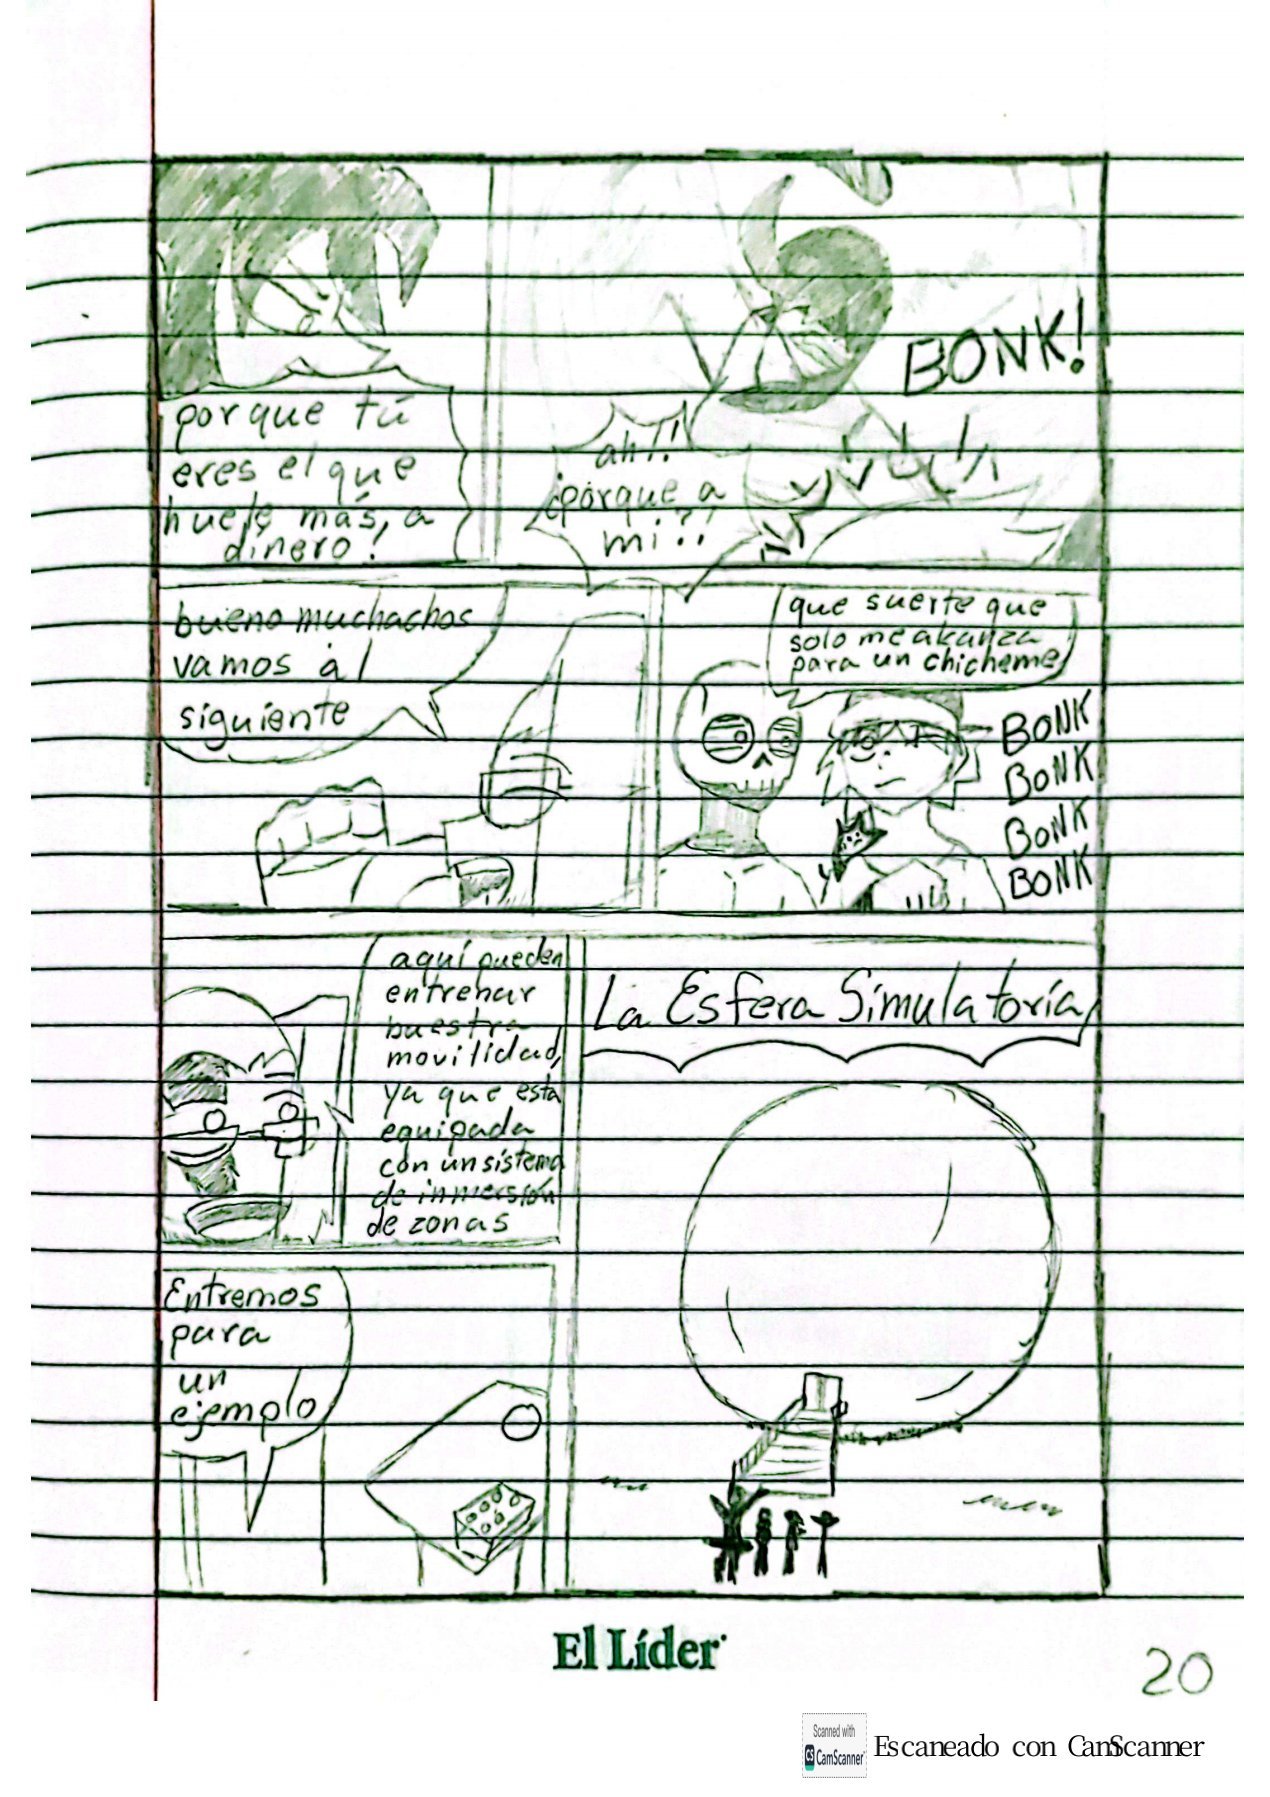 porque tú
eres el que
huele más, a
dinero!
BONK!
ah!!
¡porque a
mi?!
bueno muchachos
vamos al
siguiente
que suerte que
solo me alcanza
para un chicheme
BONK
BONK
BONK
BONK
aquí pueden
entrenar
buestra
movilidad,
ya que esta
equipada
con un sistema
de inmersión
de zonas
La Esfera Simulatoria
Entremos
para
un
ejemplo
El Líder
20
Scanned with
CS CamScanner
Escaneado con CamScanner